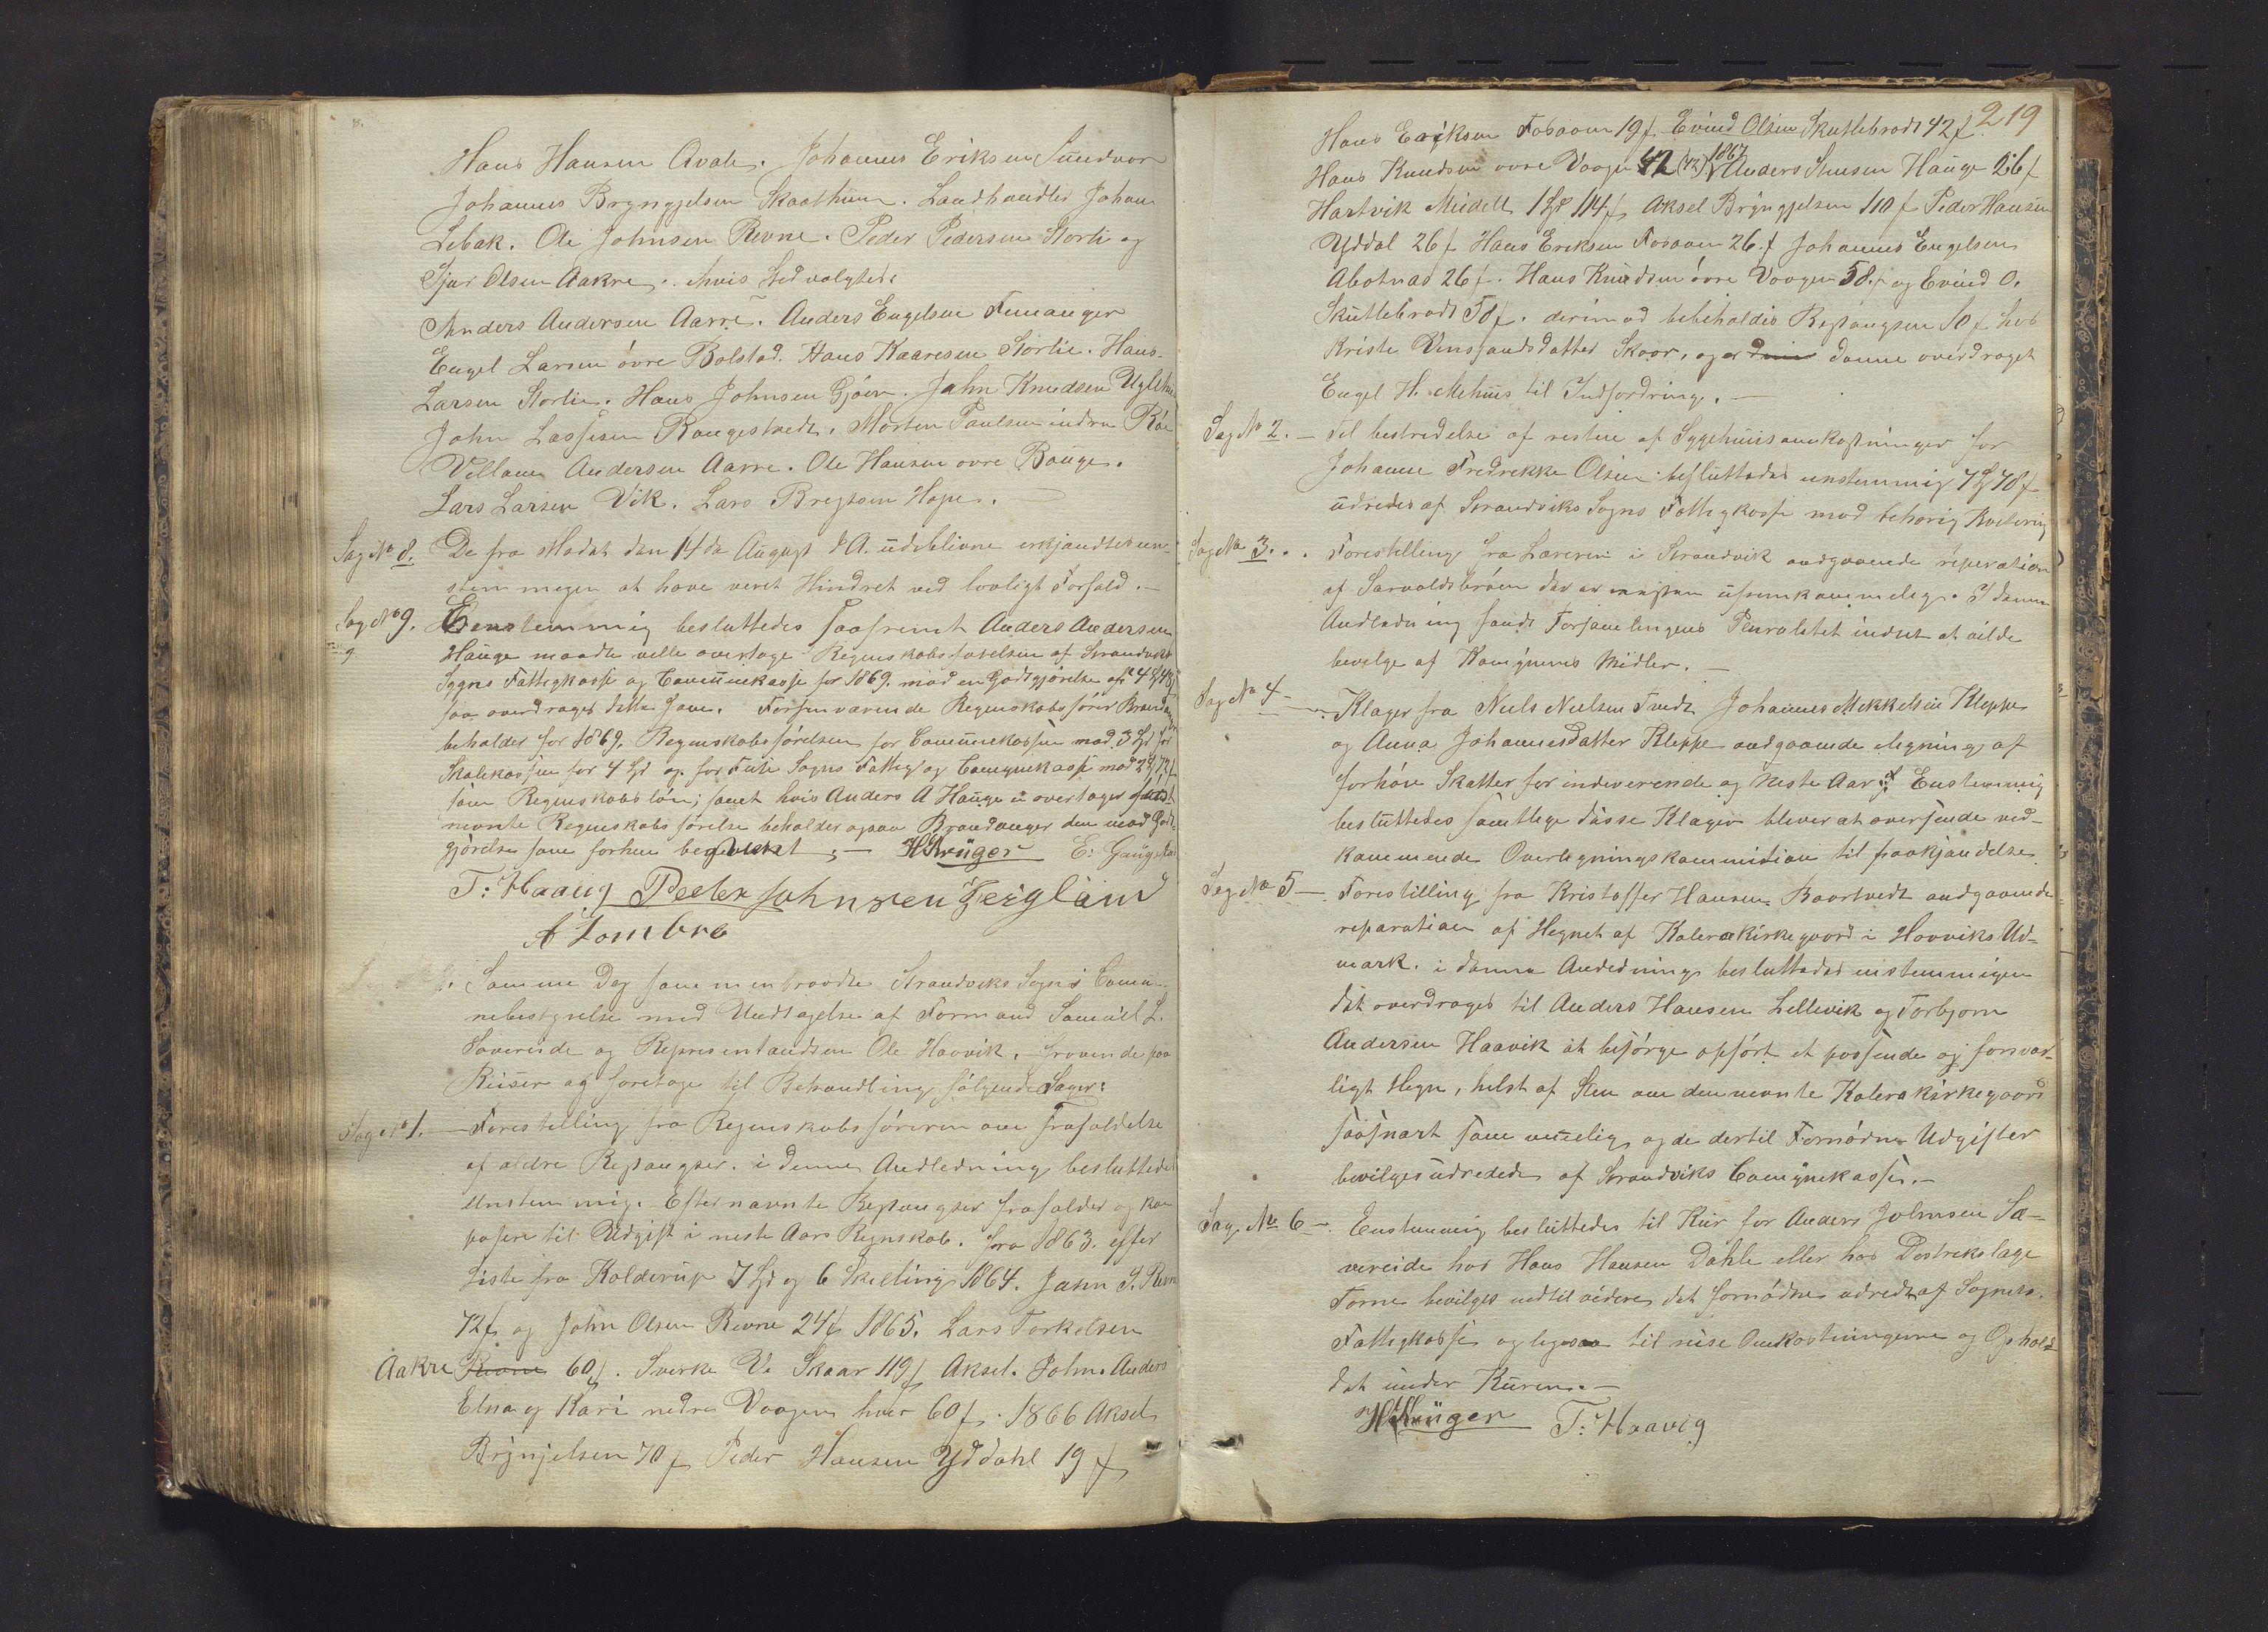 Hans Hansen Qvale. Johannes Eriksen Sundvor
Johannes Bryngjelsen Skaathun. Landhandler Johan
Lebak. Ole Johnsen Revne. Peder Pedersen Storli og
Sjur Olsen Aakre. hvis Sted valgtes:
Anders Andersen Aarre. Anders Engelsen Femanger
Engel Larsen övre Bolstad. Hans Kaaresen Storlie. Hans
Larsen Storlie. Hans Johnsen Gjöen. John Knudsen Uglehus
John Lassesen Rougestvedt. Morten Paulsen indre Röe
Villam Andersen Aarre. Ole Hansen ovre Bouge.
Lars Larsen Vik. Lars Brejtsen Hope.
Sag No 8. De fra Mødet den 14de August d A. udeblivne erkjendtes een-
stemmigen at have veret Hindret ved lovligt Forfald.
Sag No 9. Eenstemmig besluttedes saafremt Anders Andersen
9 Hauge maadte velle overtage Regnskabsførelsen af Strandviks
Sogns Fattigkasse og Comunekasse for 1869. mod en Godtgjörelse af 4
saa overdrages dette ham. Forhenværende Regnskabsförer Brandanger
beholder for 1869. Regnskabsförelsen for Comunekassen mod 3 Spd for
Skolekassen for 4 Spd og for Fuse Sogns Fattig og Comunekasse mod 2
som Regnskabslön; samt hvis Anders A Hauge ei overtager
nevnte Regnskabsförelse beholder ogsaa Brandanger den mod Godt-
gjörelse som forhen begunst ;— HKrüger E: Gaugstad
T: Haavig Peder Johnsen Teigland
A Lombre
Samme Dag sammentraadte Strandviks Sogns Comu-
nebestyrelse med Undtagelse af Formand Samuel L.
Sövereide og Representandten Ole Haavik. fraverende paa
Reiser og foretoge til Behandling fölgende Sager:
Sag No 1. — Forestilling fra Regnskabsföreren om Frafaldelse
af eldre Restangser. i denne Andledning besluttedes
enstemmig. Efternevnte Restangser frafaldes og kan
pasere til Udgift i neste Aars Regnskab. fra 1863. efter
Liste fra Kolderup 7 Spd og 6 Skelling 1864. John S. Revne
72 f og John Olsen Revne 24 f 1865. Lars Torkelsen
Aakre Revne 60 f. Sverke V. Skaar 119 f Aksel. John. Anders
Elna og Kari nedre Vaagen hver 60 f. 1866 Aksel
Brynjelsen 70 f Peder Hansen Yddahl 19 f
219
Hans Eriksen Fosaaen 19 f. Evind Olsen Skutlebrodt 42 f.
Hans Knudsen ovre Vaagen 42 (42) 1867 Anders Simsen Hauge 26 f
Hartvik Meidell 1 Spd 114 f Aksel Bryngjelsen 110 f Peder Hansen
Yddal 26 f Hans Eriksen Fosaaen 26. f Johannes Engelsen
Abotnas 26 f. Hans Knudsen övre Vaagen 58. f og Evind O.
Skutlebrodt 58 f. derimod bebeholdes Restangsen 50 f. hos
Kriste Vinssandsdatter Skaar, og er denne overdraget
Engel H. Mehus til Indfordring.
Sag No 2. — Til bestredelse af restene af Sygehuusomkostninger for
Johanne Fredrekke Olsen besluttedes enstemmig 7 Spd 78 f
udredes af Strandviks Sogns Fattigkasse mod behörig Kvitering
Sag No 3. . . Forestilling fra Læreren i Strandvik andgaaende reperation
af Sarvoldsbröen der er nesten ufremkommelig. I denne
Andledning fandt Forsamlingens Pluralitet indtet at vilde
bevilge af Komunens Midler.
Sag No 4 — Klager fra Niels Nielsen Tvedt Johannes Mekkelsen Kleppe
og Anna Johannesdatter Kleppe andgaaende elegning af
forhöie Skatter for indeverende og neste Aar. Enstemmig
besluttedes samtlege disse Klager bliver at oversende ved-
kommende Overlegningskommision til paakjendelse.
Sag No 5 — Forestilling fra Kristoffer Hansen Baartvedt andgaaende
reparation af Hegnet af Kolerakirkegaard i Haaviks Ud-
mark. i denne Andledning besluttedes enstemmigen
det overdrages til Anders Hansen Lellevik og Torbjorn
Andersen Haavik at besörge opfört et passende og forsvar-
ligt Hegn, helst af Sten om den nevnte Kolerakirkegaard
saasnart som muelig og de dertil Fornödne Udgifter
bevilges udredede af Strandviks Comunekasse.
Sag No 6 — Enstemmig besluttedes til Kur for Anders Johnsen Sæ-
vereide hos Hans Hansen Dahle eller hos Destrekslæge
Torne bevilges indtil videre det fornödne udredt af Sognets.
Fattigkasse og ligesaa til reise Omkostningerne og Ophold
det under Kuren.
HKrüger T: Haavig